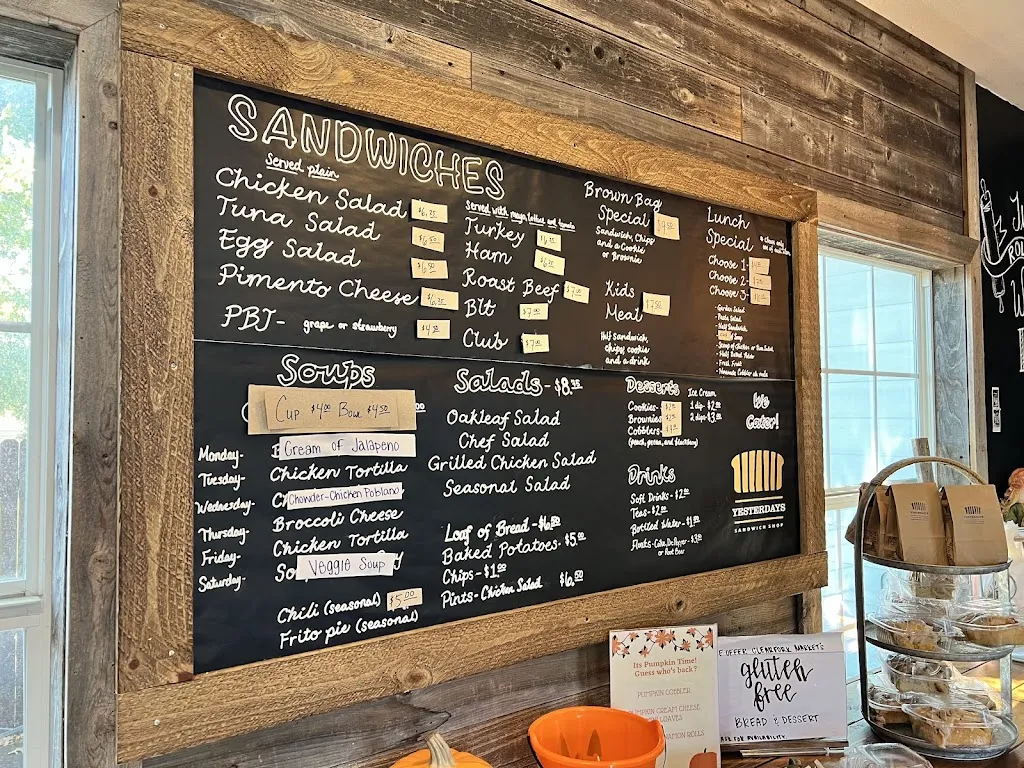 SANDWICHES
Served plain
Chicken Salad
Tuna Salad
Egg Salad
Pimento Cheese
PBJ- grape or strawberry $4.50
Served with mayo, lettuce and tomato
Turkey
Ham
Roast Beef
Blt
Club
Brown Bag
Special
Sandwich, Chips
and a Cookie
or Brownie
Kids
Meal
Half Sandwich,
chips, cookie
and a drink
Lunch
Special
Choose 1-
Choose 2-
Choose 3-
- Garden Salad
- Pasta Salad
- Half Sandwich
- Half Baked Potato
- Fresh Fruit
Soups
Cup $4.00 Bowl $4.50
Monday- Cream of Jalapeno
Tuesday- Chicken Tortilla
Wednesday- Chowder-Chicken Poblano
Thursday- Broccoli Cheese
Friday- Chicken Tortilla
Saturday- Veggie Soup
Chili (seasonal) $5.00
Frito pie (seasonal)
Salads - $8.
Oakleaf Salad
Chef Salad
Grilled Chicken Salad
Seasonal Salad
Loaf of Bread -
Baked Potatoes - $5.00
Chips - $1.00
Pints - Chicken Salad $6.50
Desserts
Cookies-
Brownies
Cobblers-
(peach, pecan, and blackberry)
Ice Cream
1 dip-
2 dips-
Drinks
Soft Drinks -
Teas -
Bottled Water -
Floats - Coke, Dr. Pepper
or Root Beer
We
Cater!
YESTERDAYS
SANDWICH SHOP
Its Pumpkin Time!
Guess who's back?
PUMPKIN COBBLER
PUMPKIN CREAM CHEESE
LOAVES
E OFFER CLEARFORK MARKET'S
gluten
free
BREAD & DESSERT
ASK FOR AVAILABILITY